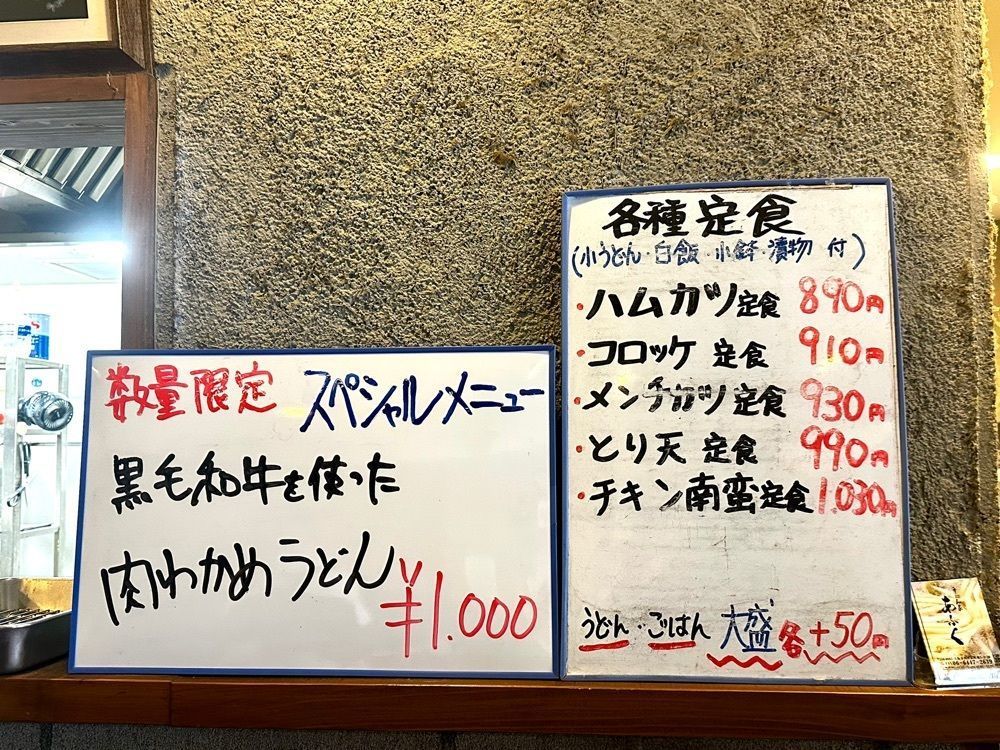 数量限定 スペシャルメニュー
黒毛和牛を使った
肉わかめうどん ¥1.000
各種定食
(小うどん・白飯・小鉢・漬物 付)
・ハムカツ定食 890円
・コロッケ 定食 910円
・メンチカツ定食 930円
・とり天 定食 990円
・チキン南蛮定食 1.030円
うどん・ごはん 大盛 各+50円